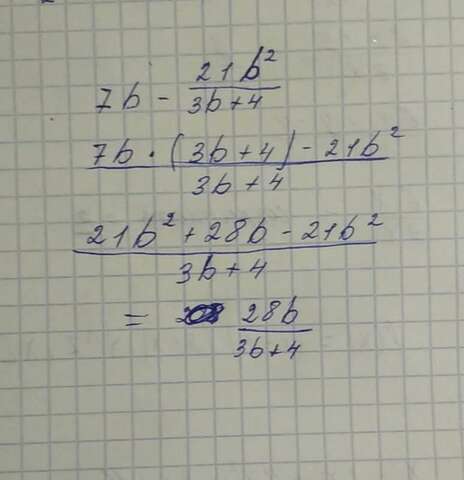 7b - 21b²/3b+4
7b · (3b+4) - 21b²/3b+4
21b² + 28b - 21b²/3b+4
= 28b/3b+4